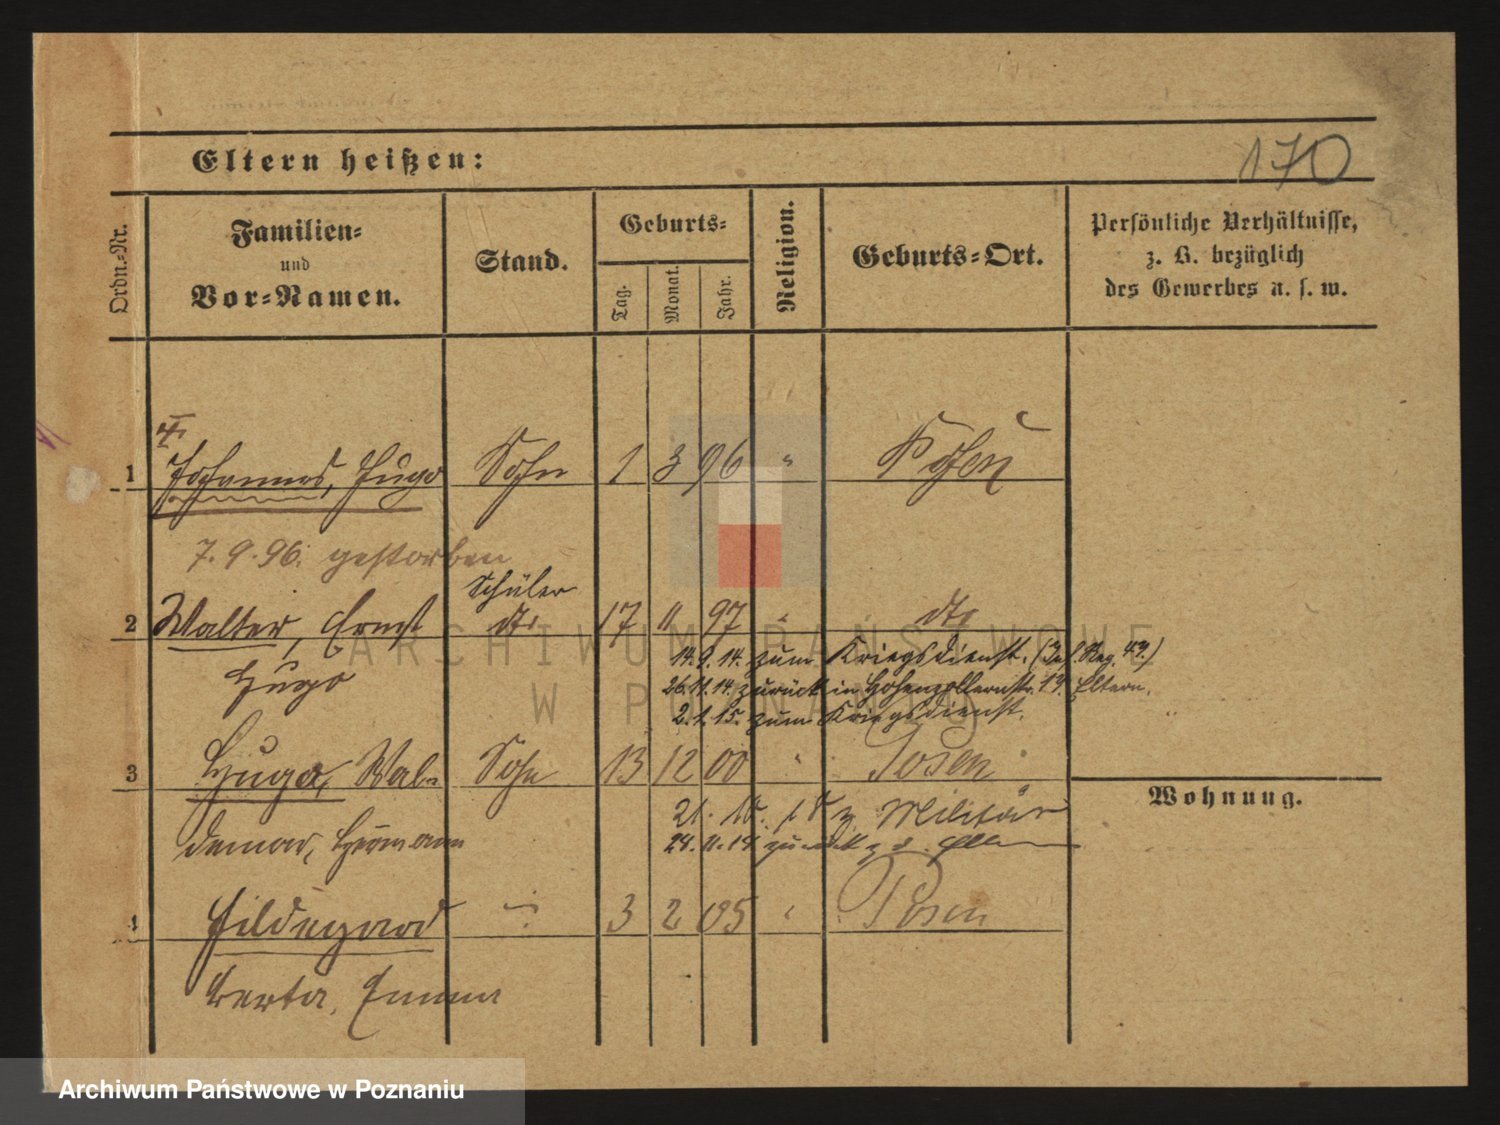 170
Eltern heißen:
Ordn.-Nr.
Familien- und Vor-Namen.
Stand.
Geburts-
Tag.
Monat.
Jahr.
Religion.
Geburts-Ort.
Persönliche Verhältnisse,
z. B. bezüglich
des Gewerbes u. s. w.
1 Johannes, Hugo Sohn 1 3 96 " Posen
7.9.96. gestorben
Schüler
2 Walter, Ernst dto 17 11 97 " dto
Hugo
14.9.14. zum Kriegsdienst. (Inf. Reg. 49.)
26.11.14. zurück in Hohenzollernstr. 19. Eltern.
2.1.15. zum Kriegsdienst.
3 Hugo, Wal- Sohn 13 12 00 " Posen
demar, Hermann
21. 10. 18 z. Militär
24. 11. 18 zurück z. d. Eltern
Wohnung.
4 Hildegard 3 2 05 " Posen
Berta, Emma
ARCHIWUM PAŃSTWOWE
W POZNANIU
Archiwum Państwowe w Poznaniu